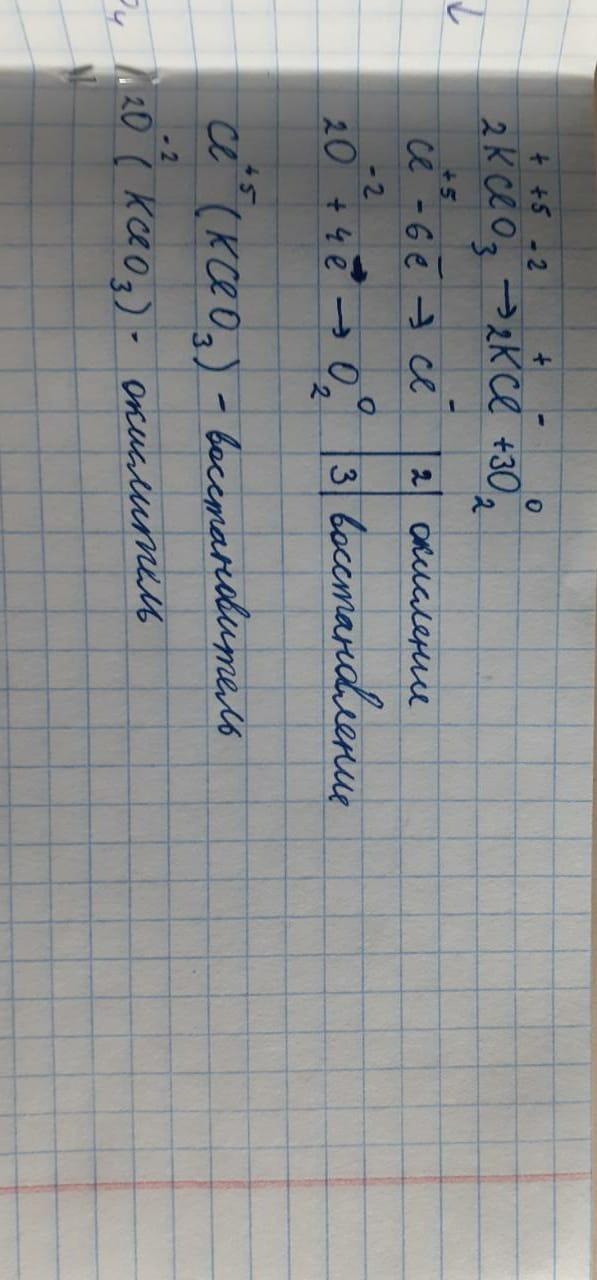 + +5 -2 + - 0
2KClO₃ → 2KCl + 3O₂
Cl⁺⁵ - 6ē → Cl⁻ | 2 | окисление
2O⁻² + 4ē → O₂⁰ | 3 | восстановление
Cl⁺⁵ (KClO₃) - восстановитель
2O⁻² (KClO₃) - окислитель